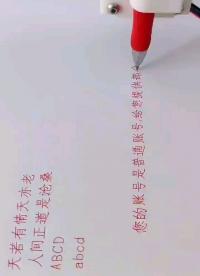 天若有情天亦老
人间正道是沧桑
ABCD
abcd
您的账号是普通账号,给您提供都